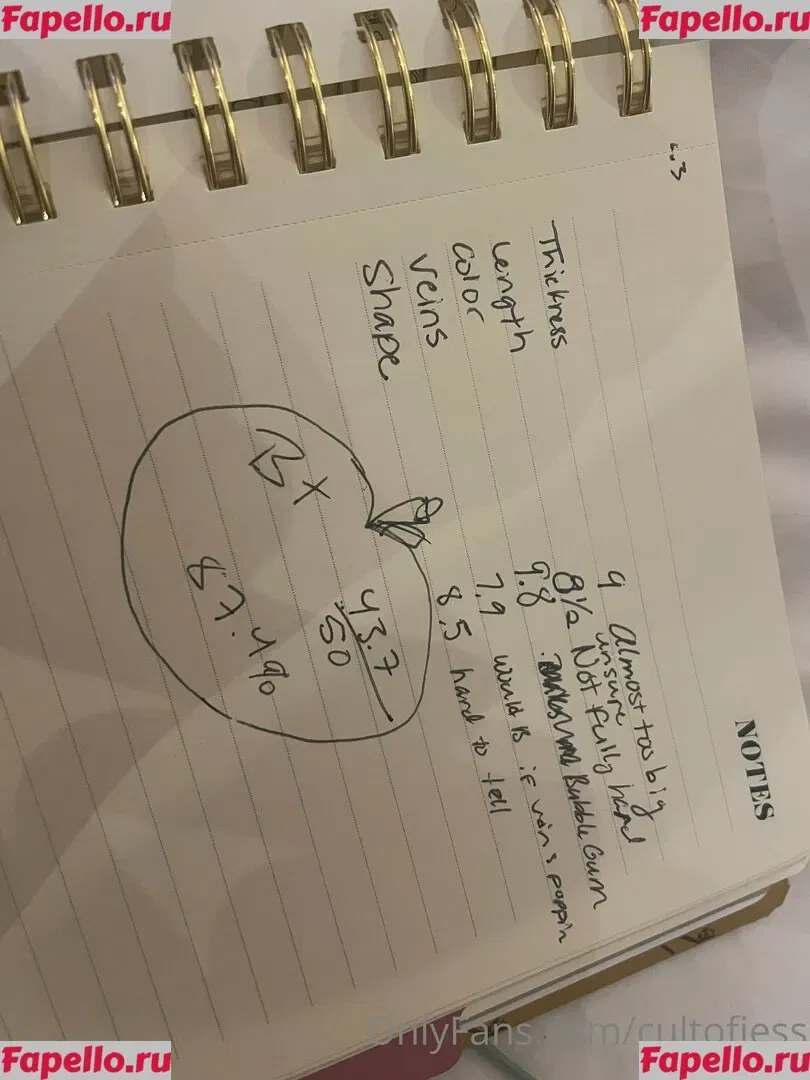 Fapello.ru
Fapello.ru
NOTES
Thickness 9 Almost too big unsure
Length 8½ Not fully hard
Color 9.8 Bubble Gum
Veins 7.9 would B if veins poppin
Shape 8.5 hard to tell
43.7
50
B+
87.4%
OnlyFans.com/cultofjess
Fapello.ru
Fapello.ru